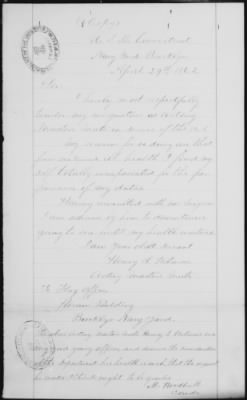 (Copy)
U.S.S. Connecticut
Navy Yard, Brooklyn
April 29th 1862
Sir
I hereby most respectfully
tender my resignation as Acting
Masters Mate in service of the U.S.
My reason for so doing is that
from continued ill health I find my
self totally incapacitated for the per
formance of my duties.
Having consulted with our Surgeon
I am advised by him to discontinue
going to sea until my health is restored.
I am your obdt servant
Henry A.
Acting Masters Mate
To Flag Officer
Hiram Paulding
Brooklyn Navy Yard.
Acting Masters Mate Henry A.
young officer, and deserves the consideration
of the Department, his health is such that the request
he makes I think ought to be granted
M. Woodhull
Comdr